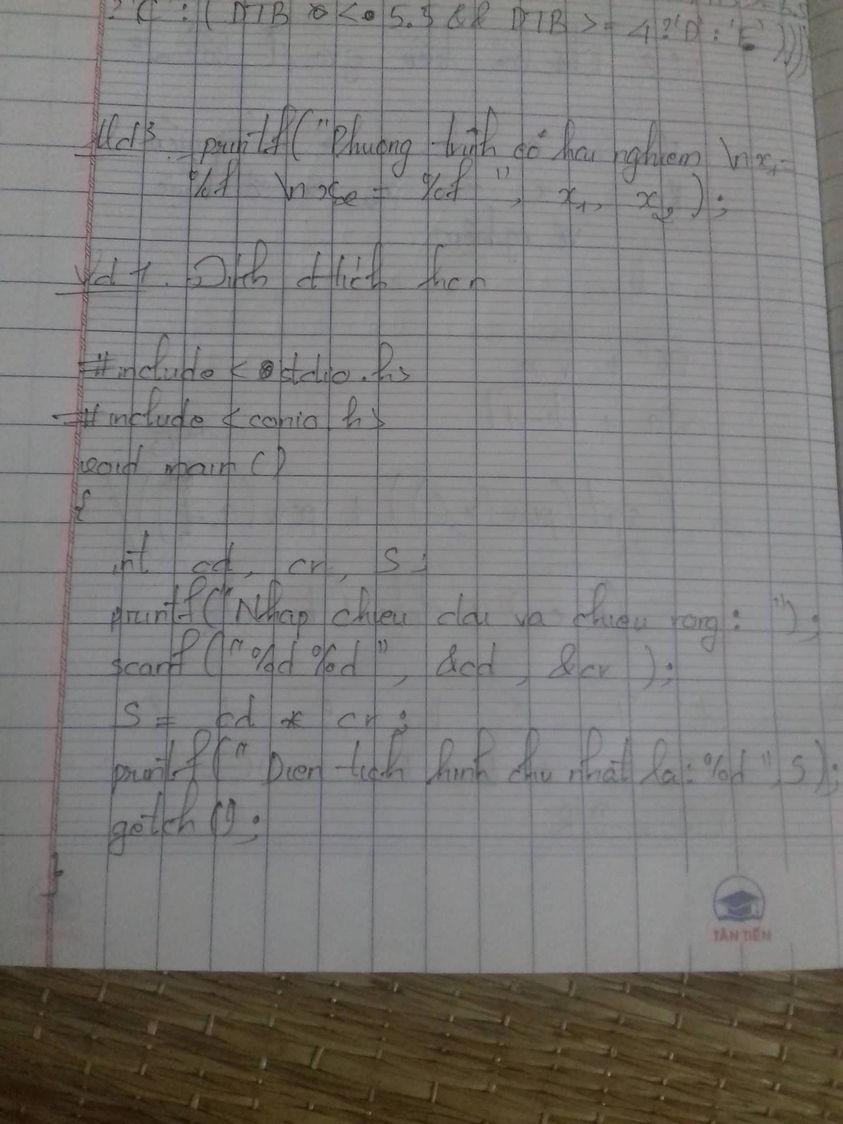 ? 'C' : ( DTB < 5.5 && DTB >= 4 ? 'D' : 'E' ))))
Vd3. printf("Phuong trinh có hai nghiem \n x₁ =
%f \n x₂ = %f ", x₁, x₂);
Vd 1. d tích hcn
#include <stdio.h>
#include <conio.h>
void main ()
{
int cd, cr, S;
printf("Nhap chieu dai va chieu rong: ");
scanf ("%d%d", &cd, &cr );
S = cd * cr ;
printf(" Dien tich hinh chu nhat la: %d ", S);
getch ();
}
TÂN TIẾN